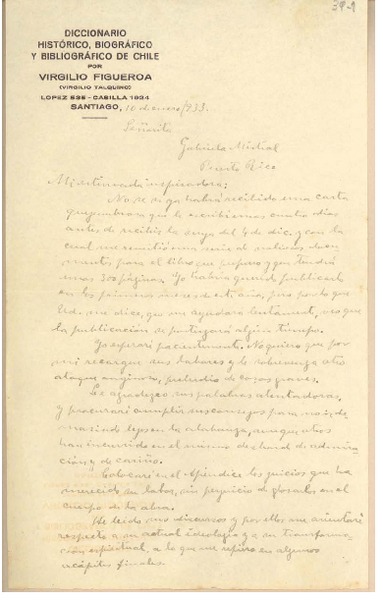 DICCIONARIO
HISTÓRICO, BIOGRÁFICO
Y BIBLIOGRÁFICO DE CHILE
POR
VIRGILIO FIGUEROA
(VIRGILIO TALQUINO)
LOPEZ 535 - CASILLA 1924
SANTIAGO, 10 de enero/933.
Señorita
Gabriela Mistral
Puerto Rico
Mi estimada inspiradora:
No sé si ya habrá recibido una carta
que le escribí unos cuatro días
antes de recibir la suya del 4 de dic. y con la
cual me remitió una serie de valiosos docu-
mentos para el libro que preparo y que tendrá
unas 300 páginas. Yo habría querido publicarlo
en los primeros meses de este año, pero por lo que
Ud. me dice, que me ayudará lentamente, veo que
la publicación se postergará algún tiempo.
Yo esperaré pacientemente. No quiero que por
mí recargue sus labores y le sobrevenga otro
ataque anginoso, preludio de cosas graves.
Le agradezco sus palabras alentadoras,
y procuraré cumplir sus consejos para no ir de-
masiado lejos en la alabanza, aunque otros
han incurrido en el mismo de admira-
ción y de cariño.
Colocaré en el Apéndice los juicios que ha
merecido su labor, sin perjuicio de glosarlos en el
cuerpo de la obra.
He leído sus discursos y por ellos me orientaré
respecto a su actual ideología y a su transforma-
ción espiritual, a lo que me refiero en algunos
acápites finales.